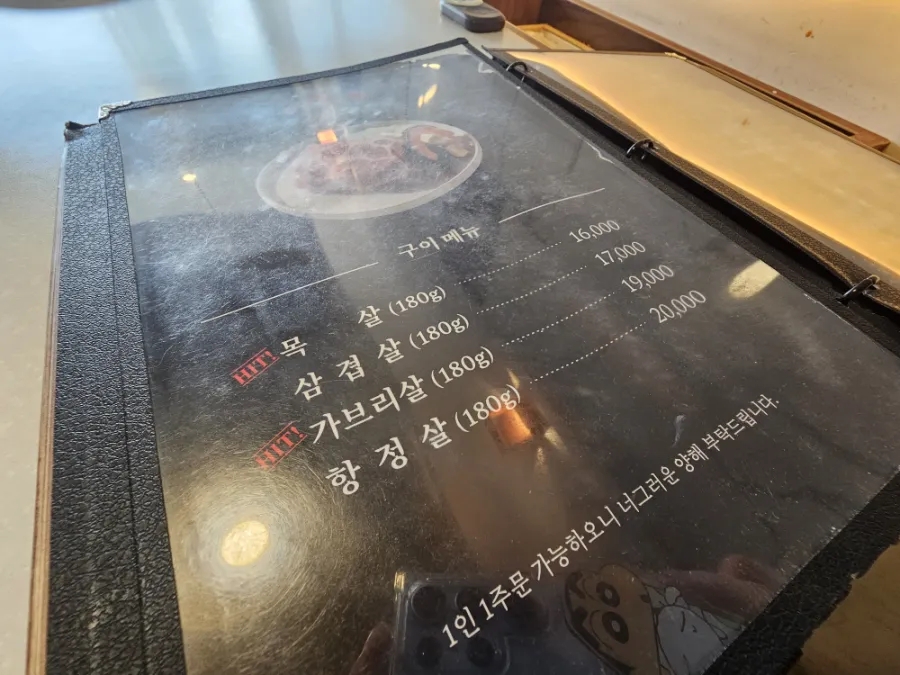 구이 메뉴
HIT! 목 살 (180g) 16,000
삼 겹 살 (180g) 17,000
HIT! 가브리살 (180g) 19,000
항 정 살 (180g) 20,000
1인 1주문 가능하오니 너그러운 양해 부탁드립니다.